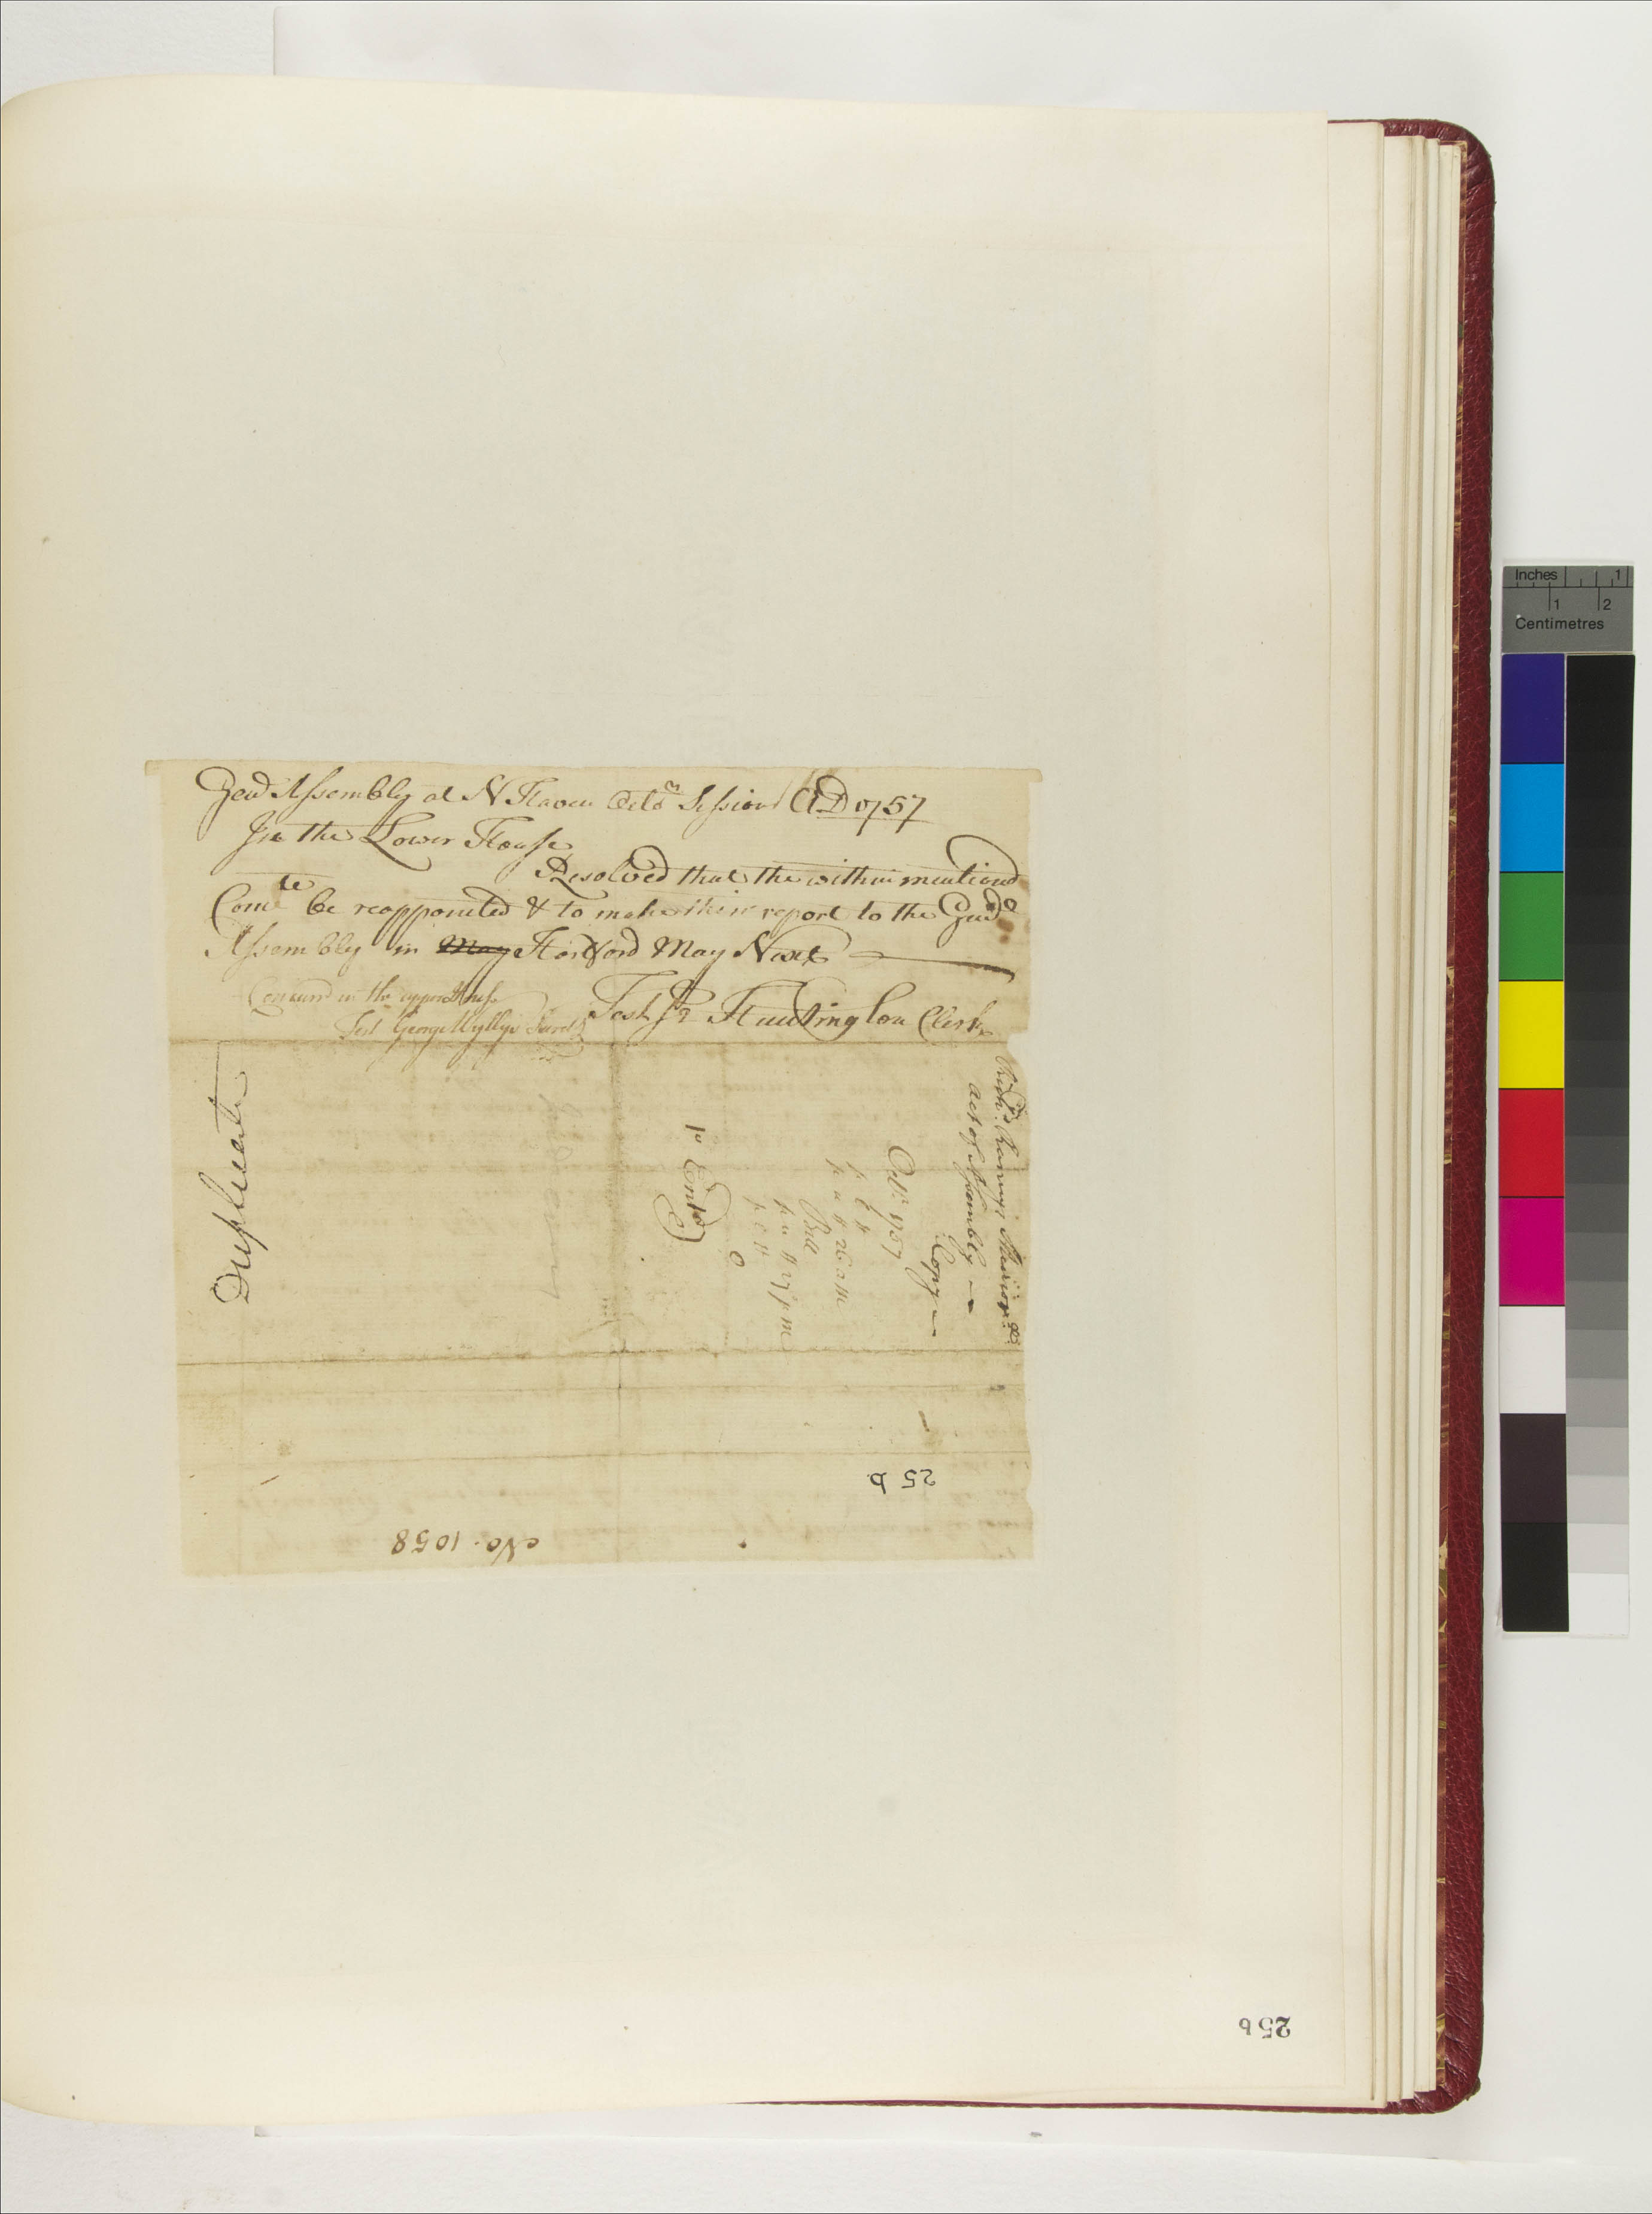 Genl Assembly at N Haven Octor Session AD 1757
In the Lower House
Resolved that the within mentiond
Comte be reappointed & to make their report to the Genll
Assembly in May Hartford May Next
Test Jr Huntington Clerk
Concurd in the upper House
Test George Wyllys Secret
Duplicate
Act of Assembly
Copy
Octr 1757
Bill
Entd
25 b
No. 1058
25 b
Inches 1
1 2
Centimetres